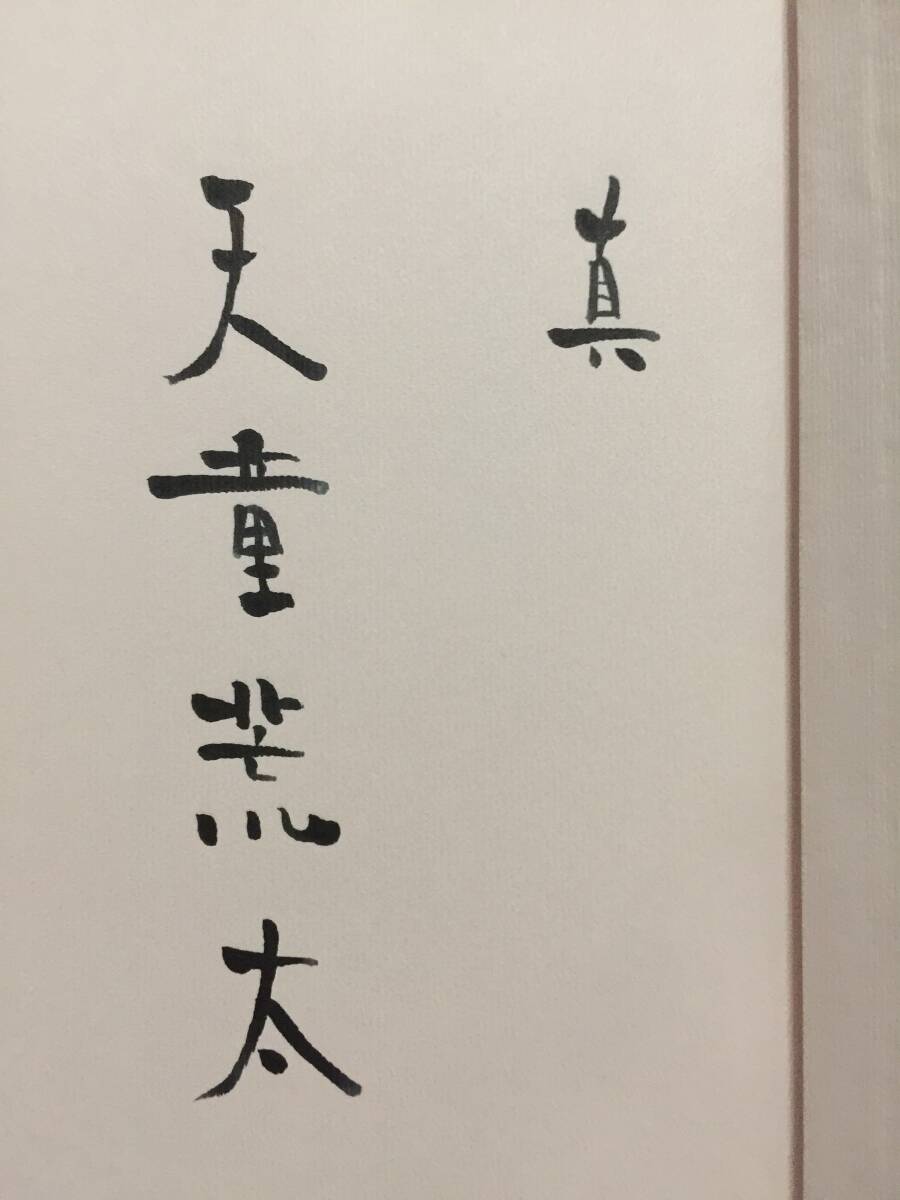 真
天童荒太